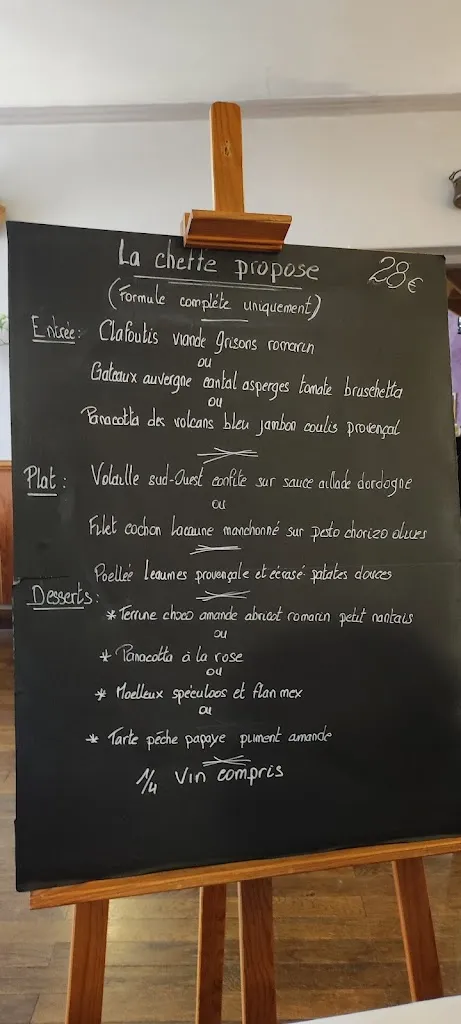 La chette propose
28€
(Formule complète uniquement)
Entrée: Clafoutis viande grisons romarin
ou
Gateaux auvergne cantal asperges tomate bruschetta
ou
Panacotta des volcans bleu jambon coulis provençal
Plat: Volaille sud-Ouest confite sur sauce aillade dordogne
ou
Filet cochon Lacaune manchonné sur pesto chorizo olives
Poellée légumes provençale et écrasé patates douces
Desserts:
* Terrine choco amande abricot romarin petit nantais
ou
* Panacotta à la rose
ou
* Moelleux spéculoos et flan mex
ou
* Tarte pêche papaye piment amande
1/4 Vin compris